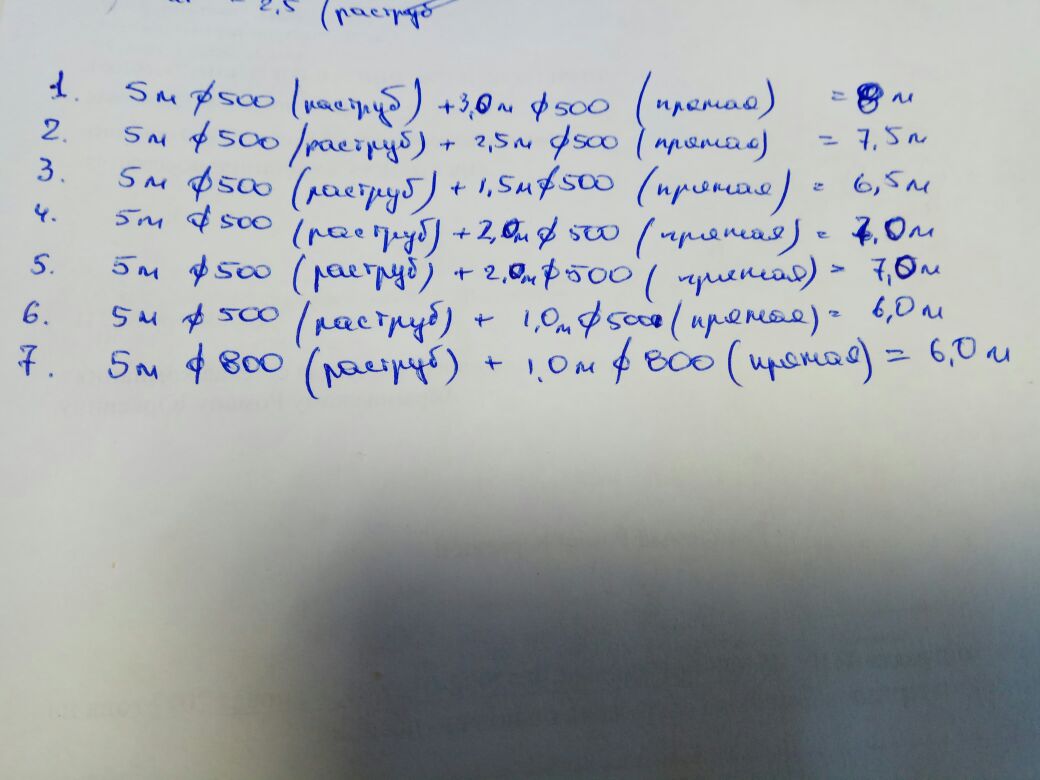 = 2,5 (раструб
1. 5м ϕ500 (раструб) + 3,0м ϕ500 (прямая) = 8 м
2. 5м ϕ500 (раструб) + 2,5м ϕ500 (прямая) = 7,5м
3. 5м ϕ500 (раструб) + 1,5м ϕ500 (прямая) = 6,5м
4. 5м ϕ500 (раструб) + 2,0м ϕ500 (прямая) = 7,0м
5. 5м ϕ500 (раструб) + 2,0м ϕ500 (прямая) = 7,0м
6. 5м ϕ500 (раструб) + 1,0м ϕ500 (прямая) = 6,0м
7. 5м ϕ800 (раструб) + 1,0м ϕ800 (прямая) = 6,0м